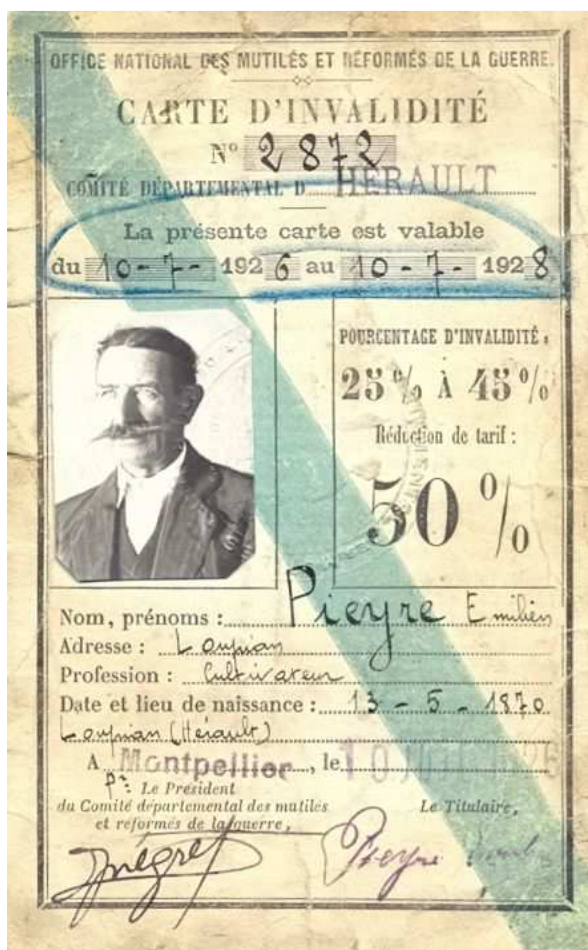 OFFICE NATIONAL DES MUTILÉS ET RÉFORMÉS DE LA GUERRE.
CARTE D'INVALIDITÉ
N° 2872
COMITÉ DÉPARTEMENTAL D HÉRAULT
La présente carte est valable
du 10-7- 1926 au 10-7- 1928
POURCENTAGE D'INVALIDITÉ :
25% À 45%
Réduction de tarif :
50%
Nom, prénoms : Pieyre Emilien
Adresse : Loupian
Profession : Cultivateur
Date et lieu de naissance : 13-5-1870
Loupian (Hérault)
A Montpellier, le 10
Pr. Le Président
du Comité départemental des mutilés
et réformés de la guerre,
Le Titulaire,
Pieyre